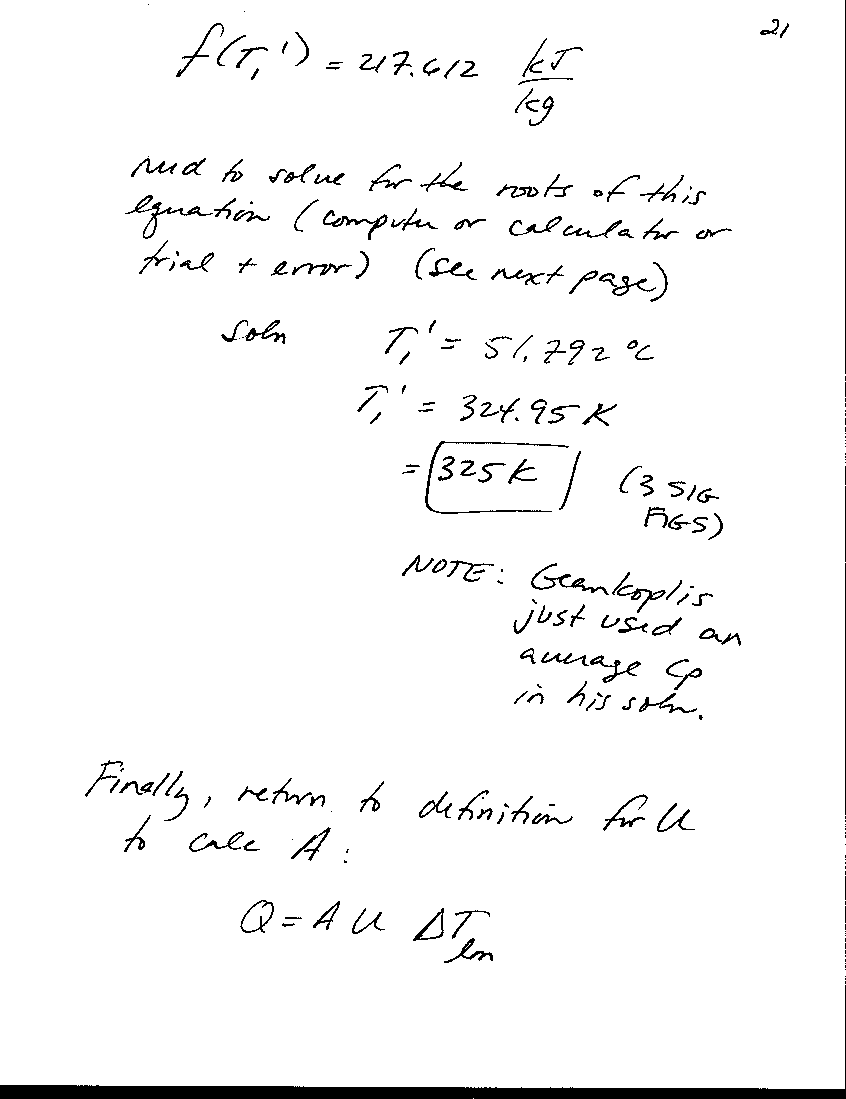 21
f(T₁') = 217.612 kJ/kg
need to solve for the roots of this
equation (computer or calculator or
trial + error) (see next page)
soln T₁' = 51.792 °C
T₁' = 324.95 K
= 325 K (3 SIG
FIGS)
NOTE: Geankoplis
just used an
average Cp
in his soln.
Finally, return to definition for U
to calc A:
Q = A U ΔT lm